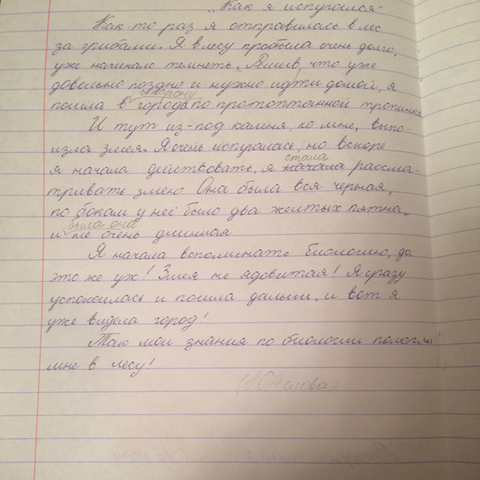 „Как я испугался"
Как-то раз я отправилась в лес
за грибами. Я в лесу пробыла очень долго,
уже начинало темнеть. Решив, что уже
довольно поздно и нужно идти домой, я
сторону
пошла в города по протоптанной тропинке.
И тут из-под камня, ко мне, выпо-
лзла змея. Я очень испугалась, но вскоре
стала
я начала действовать, я начала рассма-
тривать змею. Она была вся черная,
по бокам у неё было два желтых пятна,
была она
и не очень длинная.
Я начала вспоминать биологию, да
это же уж! Змея не ядовитая! Я сразу
успокоилась и пошла дальше, и вот я
уже видела город!
Так мои знания по биологии помогли
мне в лесу!